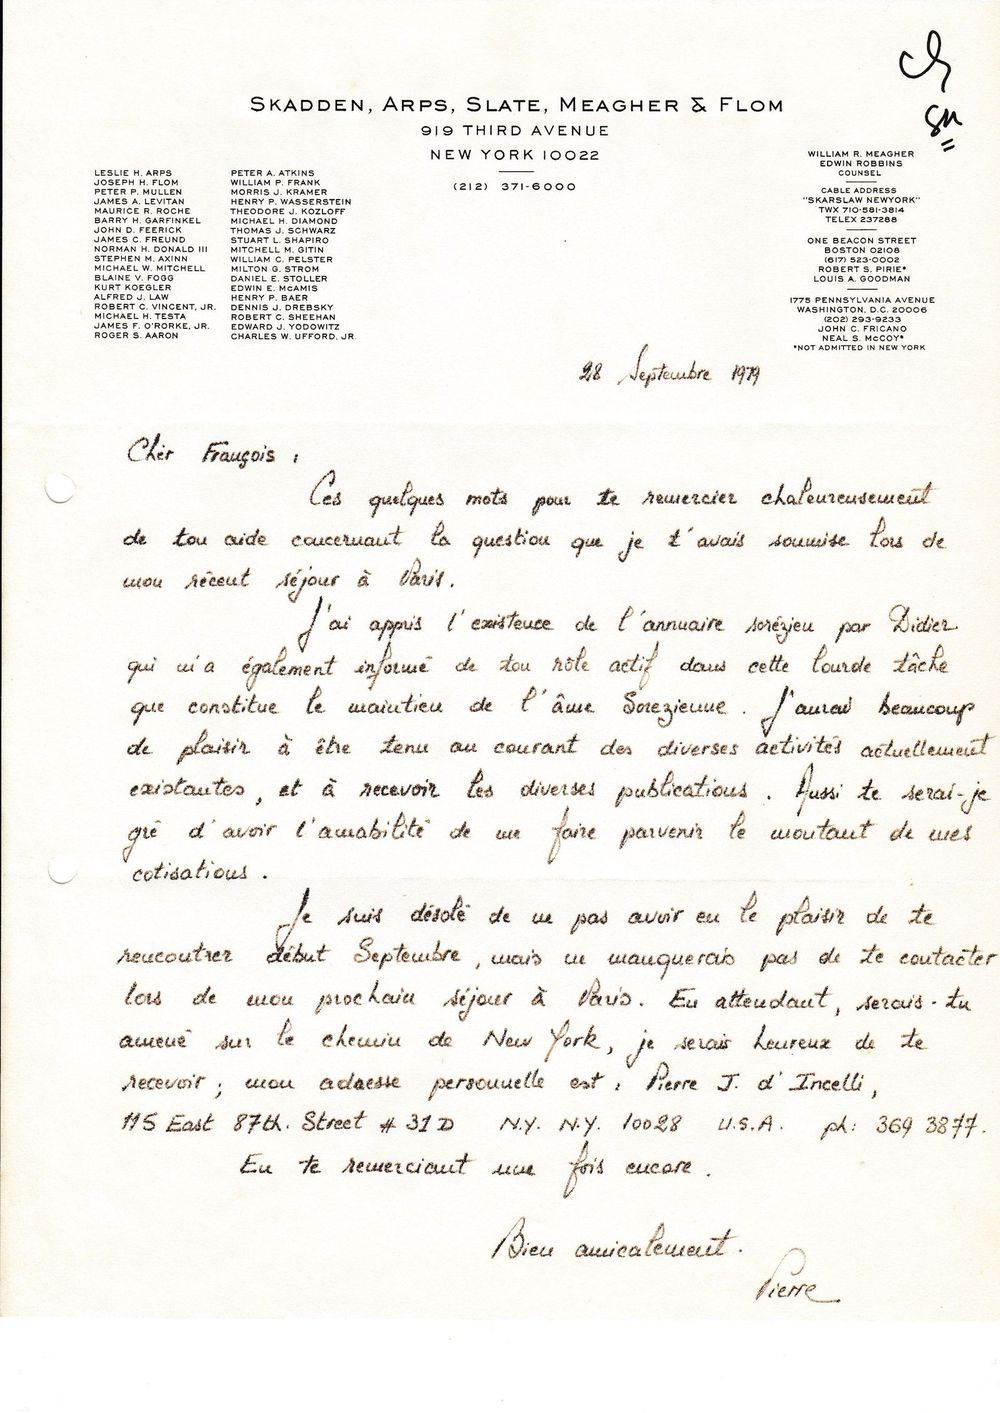 SKADDEN, ARPS, SLATE, MEAGHER & FLOM
919 THIRD AVENUE
NEW YORK 10022
(212) 371-6000
LESLIE H. ARPS
JOSEPH H. FLOM
PETER P. MULLEN
JAMES A. LEVITAN
MAURICE R. ROCHE
BARRY H. GARFINKEL
JOHN D. FEERICK
JAMES C. FREUND
NORMAN H. DONALD III
STEPHEN M. AXINN
MICHAEL W. MITCHELL
BLAINE V. FOGG
KURT KOEGLER
ALFRED J. LAW
ROBERT C. VINCENT, JR.
MICHAEL H. TESTA
JAMES F. O'RORKE, JR.
ROGER S. AARON
PETER A. ATKINS
WILLIAM P. FRANK
MORRIS J. KRAMER
HENRY P. WASSERSTEIN
THEODORE J. KOZLOFF
MICHAEL H. DIAMOND
THOMAS J. SCHWARZ
STUART L. SHAPIRO
MITCHELL M. GITIN
WILLIAM C. PELSTER
MILTON G. STROM
DANIEL E. STOLLER
EDWIN E. McAMIS
HENRY P. BAER
DENNIS J. DREBSKY
ROBERT C. SHEEHAN
EDWARD J. YODOWITZ
CHARLES W. UFFORD, JR.
WILLIAM R. MEAGHER
EDWIN ROBBINS
COUNSEL
CABLE ADDRESS
"SKARSLAW NEWYORK"
TWX 710-581-3814
TELEX 237288
ONE BEACON STREET
BOSTON 02108
(617) 523-0002
ROBERT S. PIRIE*
LOUIS A. GOODMAN
1775 PENNSYLVANIA AVENUE
WASHINGTON, D.C. 20006
(202) 293-9233
JOHN C. FRICANO
NEAL S. McCOY*
*NOT ADMITTED IN NEW YORK
28 Septembre 1979
Cher François,
Ces quelques mots pour te remercier chaleureusement
de ton aide concernant la question que je t'avais soumise lors de
mon récent séjour à Paris.
J'ai appris l'existence de l'annuaire sorézien par Didier
qui m'a également informé de ton rôle actif dans cette lourde tâche
que constitue le maintien de l'âme Sorezienne. J'aurai beaucoup
de plaisir à être tenu au courant des diverses activités actuellement
existantes, et à recevoir les diverses publications. Aussi te serai-je
gré d'avoir l'amabilité de me faire parvenir le montant de mes
cotisations.
Je suis désolé de ne pas avoir eu le plaisir de te
rencontrer début Septembre, mais ne manquerais pas de te contacter
lors de mon prochain séjour à Paris. En attendant, serais-tu
amené sur le chemin de New York, je serais heureux de te
recevoir; mon adresse personnelle est: Pierre J. d'Incelli,
115 East 87th. Street # 31D N.Y. N.Y. 10028 U.S.A. ph: 369 3877.
En te remerciant une fois encore.
Bien amicalement.
Pierre